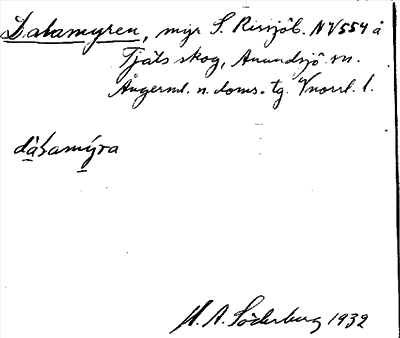 Dalamyren, myr S. Rissjöb. NV554 å
Tjäls skog, Anundsjö sn.
Ångerml. n. doms. tg. Vnorrl. l.
dàlamy̍ra
H. A. Söderberg 1932